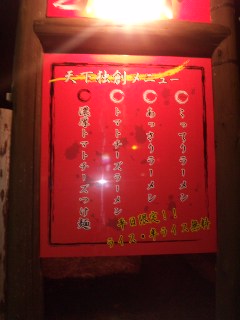 天下独創メニュー
◎こってりラーメン
◎あっさりラーメン
◎トマトチーズラーメン
◎濃厚トマトチーズつけ麺
平日限定!!
ライス・半ライス無料